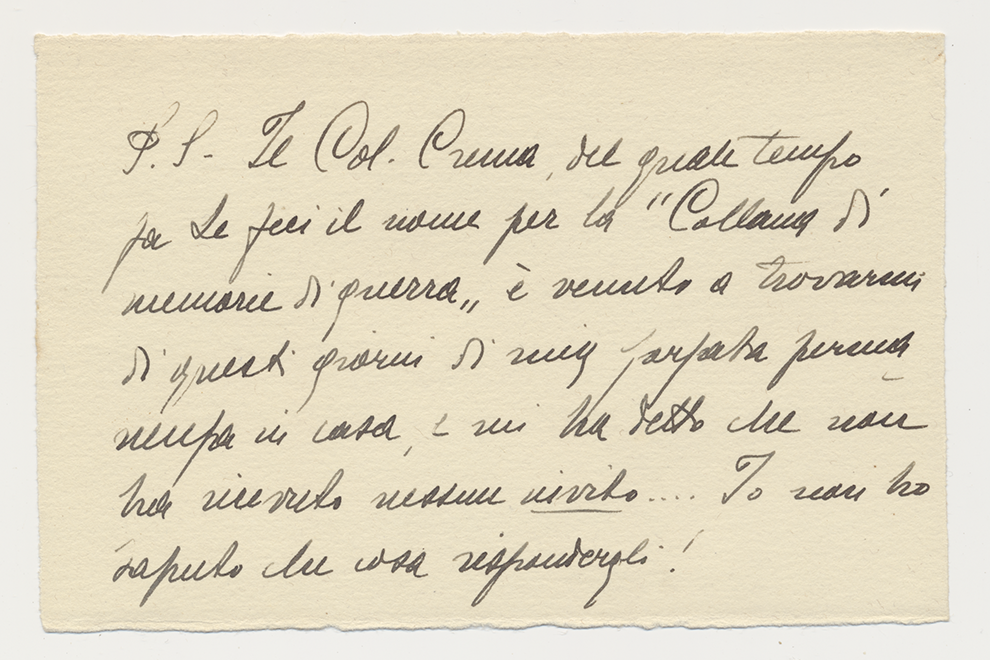 P.S- Il Col. Crema, del quale tempo
fa Le feci il nome per la "Collana di
memorie di guerra„ è venuto a trovarmi
di questi giorni di mia forzata perma
nenza in casa, e mi ha detto che non
ha ricevuto nessun invito.... Io non ho
saputo che cosa rispondergli!